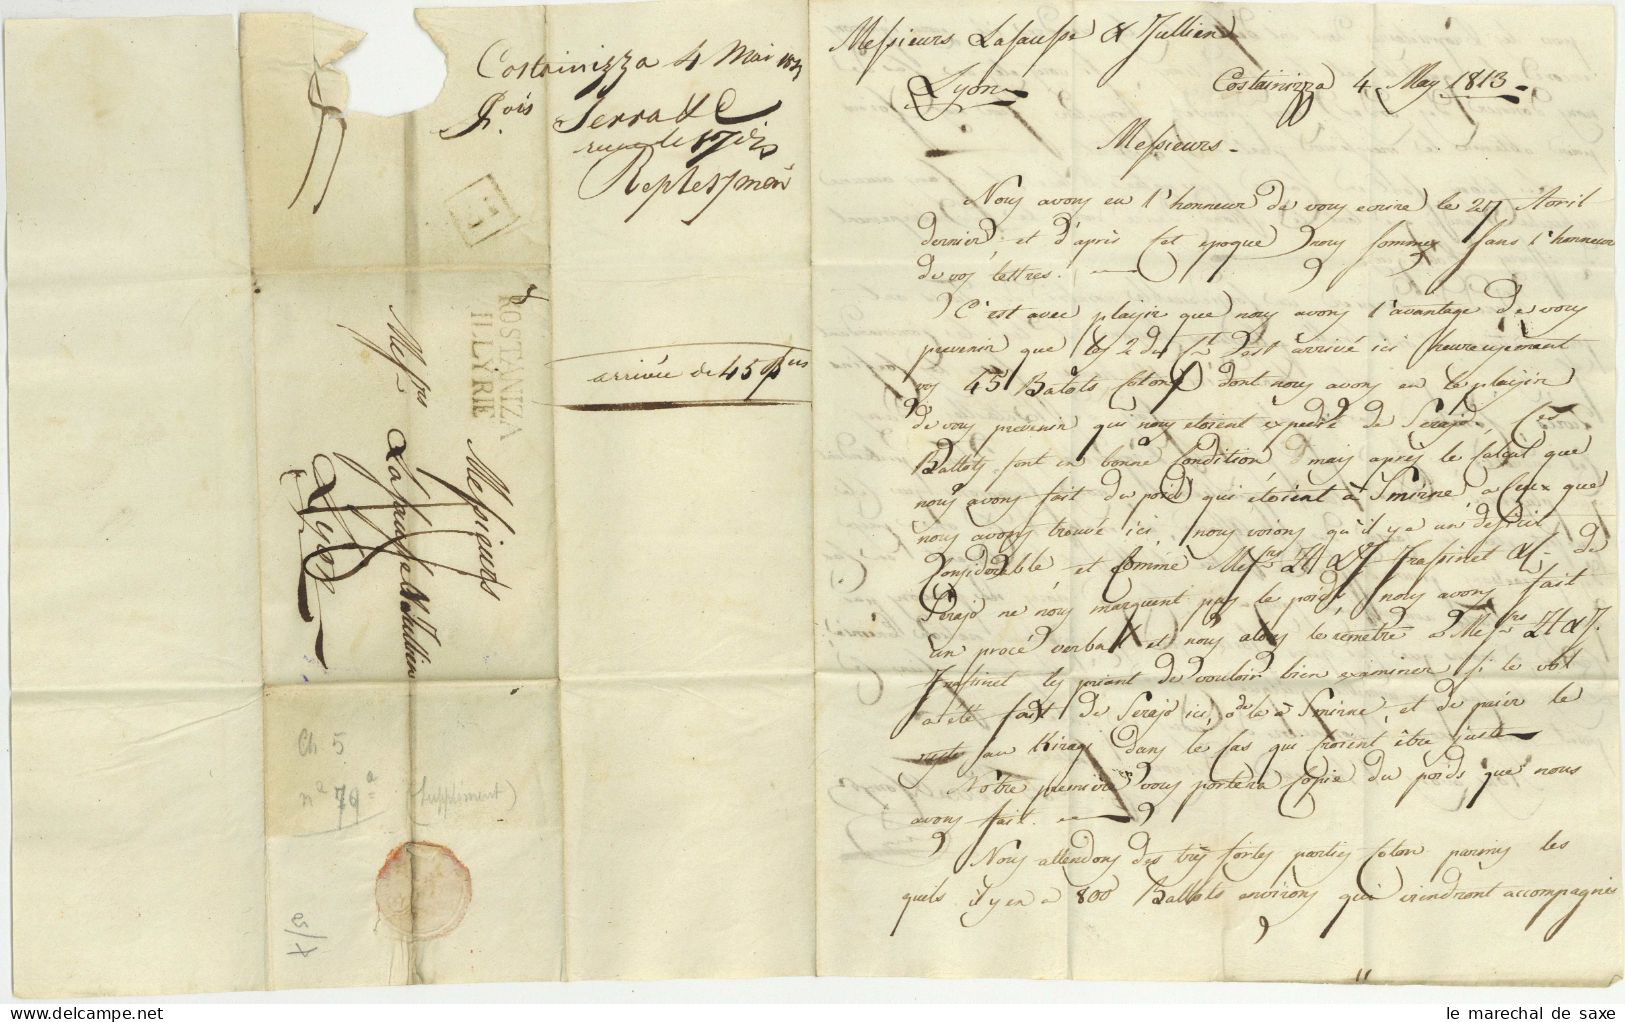 Costainizza 4 Mai 1813
Ois Serra & C
rue le 17 d
Rep le 7 mai
R.4
ROSTANIZA
ILLYRIE
arrivée de 45 Bus
Messieurs
Messrs Lasausse & Jullien
Lyon
Ch 5
n° 79a (supplément)
Messieurs Lasausse & Jullien
Lyon
Costainizza 4 May 1813
Messieurs
Nous avons eu l'honneur de vous ecrire le 27 Avril
dernier; et d'après cet epoque nous sommes sans l'honneur
de vos lettres.
C'est avec plaisir que nous avons l'avantage de vous
prevenir que le 2 du Ct est arrivé ici heureusement
vos 45 Balots Coton dont nous avons eu le plaisir
de vous prevenir qui nous etoient expedié de Serajo. Ces
Ballots sont en bonne Condition, mais après le Calcul que
nous avons fait du poids qui étoient à Smirne, a ceux que
nous avons trouvé ici, nous voions qu'il y a un deficit
Considerable, et comme Messrs H & J Frassinet & C de
Serajo ne nous marquent pas le poids, nous avons fait
un procé verbal et nous alons le remetre a Messrs H & J.
Frassinet les priant de vouloir bien examiner si le vol
a eté fait de Serajo ici, o de la à Smirne, et de païer le
reste au Kiragi dans le cas qui soient être juste
Nôtre premiere vous portera Copie du poids que nous
avons fait.
Nous attendons des très fortes parties Coton parmis les
quels il y en a 800 Ballots environs qui viendront accompagnés
le marechal de saxe